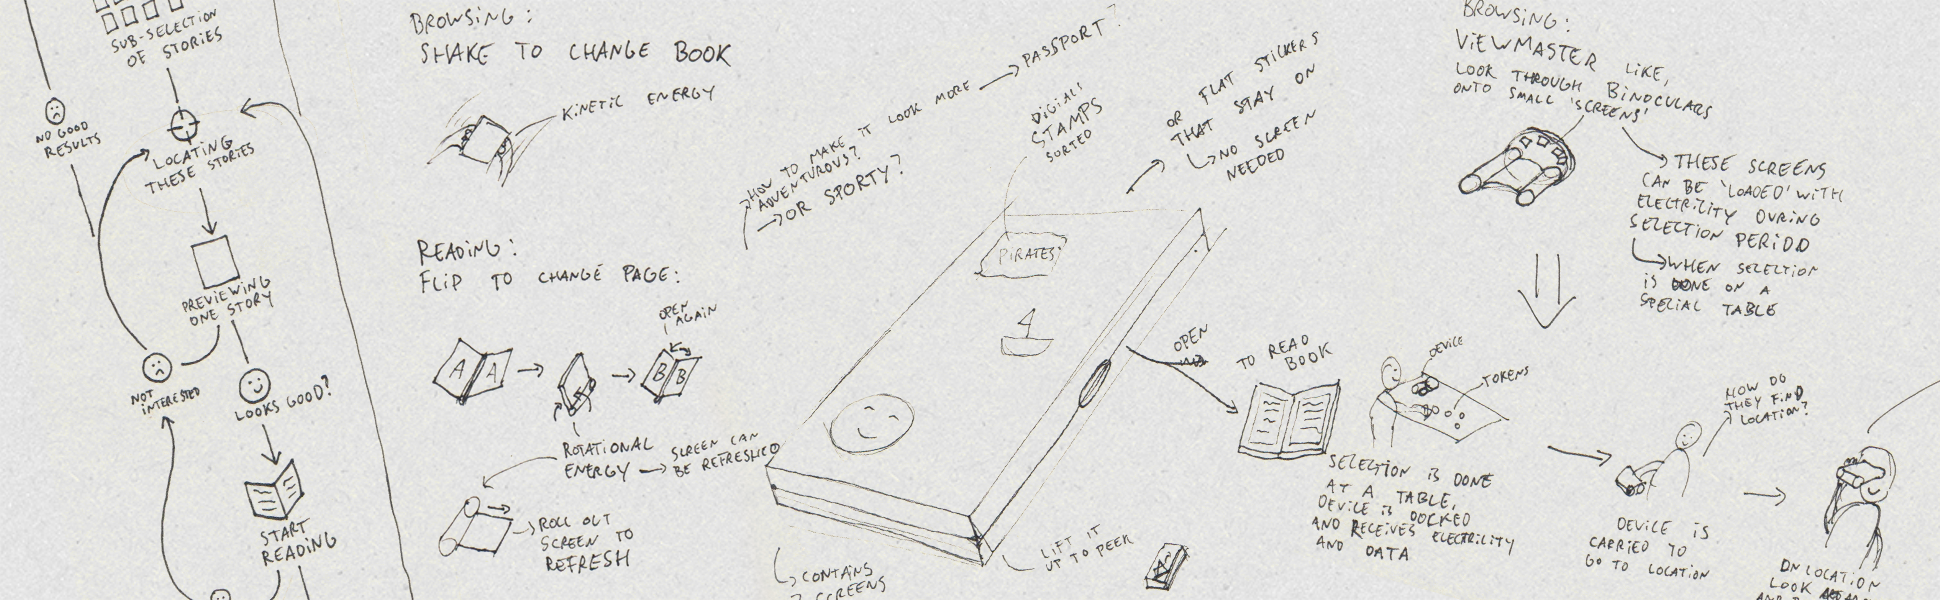 SUB-SELECTION
OF STORIES
NO GOOD
RESULTS
LOCATING
THESE STORIES
PREVIEWING
ONE STORY
NOT
INTERESTED
LOOKS GOOD?
START
READING
BROWSING:
SHAKE TO CHANGE BOOK
KINETIC ENERGY
READING:
FLIP TO CHANGE PAGE:
A A
OPEN
AGAIN
B B
ROTATIONAL
ENERGY
SCREEN CAN
BE REFRESHED
ROLL OUT
SCREEN TO
REFRESH
HOW TO MAKE IT LOOK MORE
ADVENTUROUS?
OR SPORTY?
PASSPORT?
DIGIALS
STAMPS
SORTED
OR FLAT STICKERS
THAT STAY ON
NO SCREEN
NEEDED
PIRATES
CONTAINS
SCREENS
LIFT IT
UP TO PEEK
OPEN
TO READ
BOOK
BROWSING:
VIEWMASTER LIKE,
LOOK THROUGH BINOCULARS
ONTO SMALL 'SCREENS'
THESE SCREENS
CAN BE 'LOADED' WITH
ELECTRILITY DURING
SELECTION PERIOD
WHEN SELECTION
IS DONE ON A
SPECIAL TABLE
DEVICE
TOKENS
SELECTION IS DONE
AT A TABLE,
DEVICE IS DOCKED
AND RECEIVES ELECTRILITY
AND DATA
HOW DO
THEY FIND
LOCATION?
DEVICE IS
CARRIED TO
GO TO LOCATION
ON LOCATION
LOOK
AND